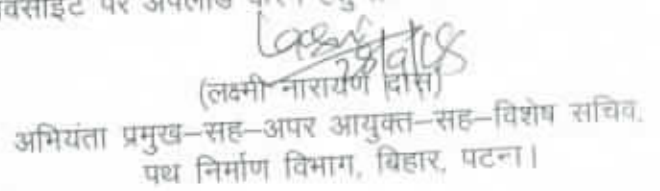 वेबसाईट पर अपलोड
(लक्ष्मी नारायण दास)
अभियंता प्रमुख–सह–अपर आयुक्त–सह–विशेष सचिव,
पथ निर्माण विभाग, बिहार, पटना।